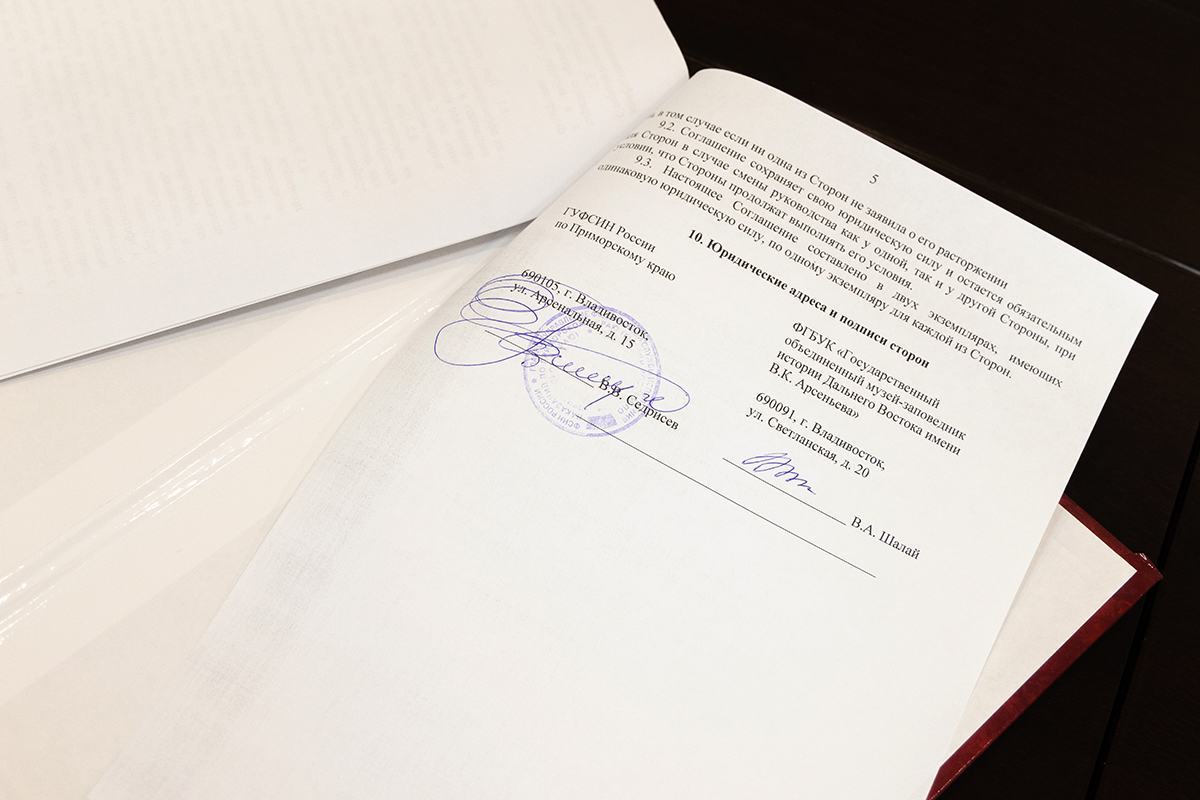 5
в том случае если ни одна из Сторон не заявила о его расторжении
9.2. Соглашение сохраняет свою юридическую силу и остается обязательным
Сторон в случае смены руководства как у одной, так и у другой Стороны, при
условии, что Стороны продолжат выполнять его условия.
9.3. Настоящее Соглашение составлено в двух экземплярах, имеющих
одинаковую юридическую силу, по одному экземпляру для каждой из Сторон.
10. Юридические адреса и подписи сторон
ГУФСИН России
по Приморскому краю
690105, г. Владивосток,
ул. Арсенальная, д. 15
В.В. Седрисев
ФСИН РОССИИ
ФГБУК «Государственный
объединенный музей-заповедник
истории Дальнего Востока имени
В.К. Арсеньева»
690091, г. Владивосток,
ул. Светланская, д. 20
В.А. Шалай